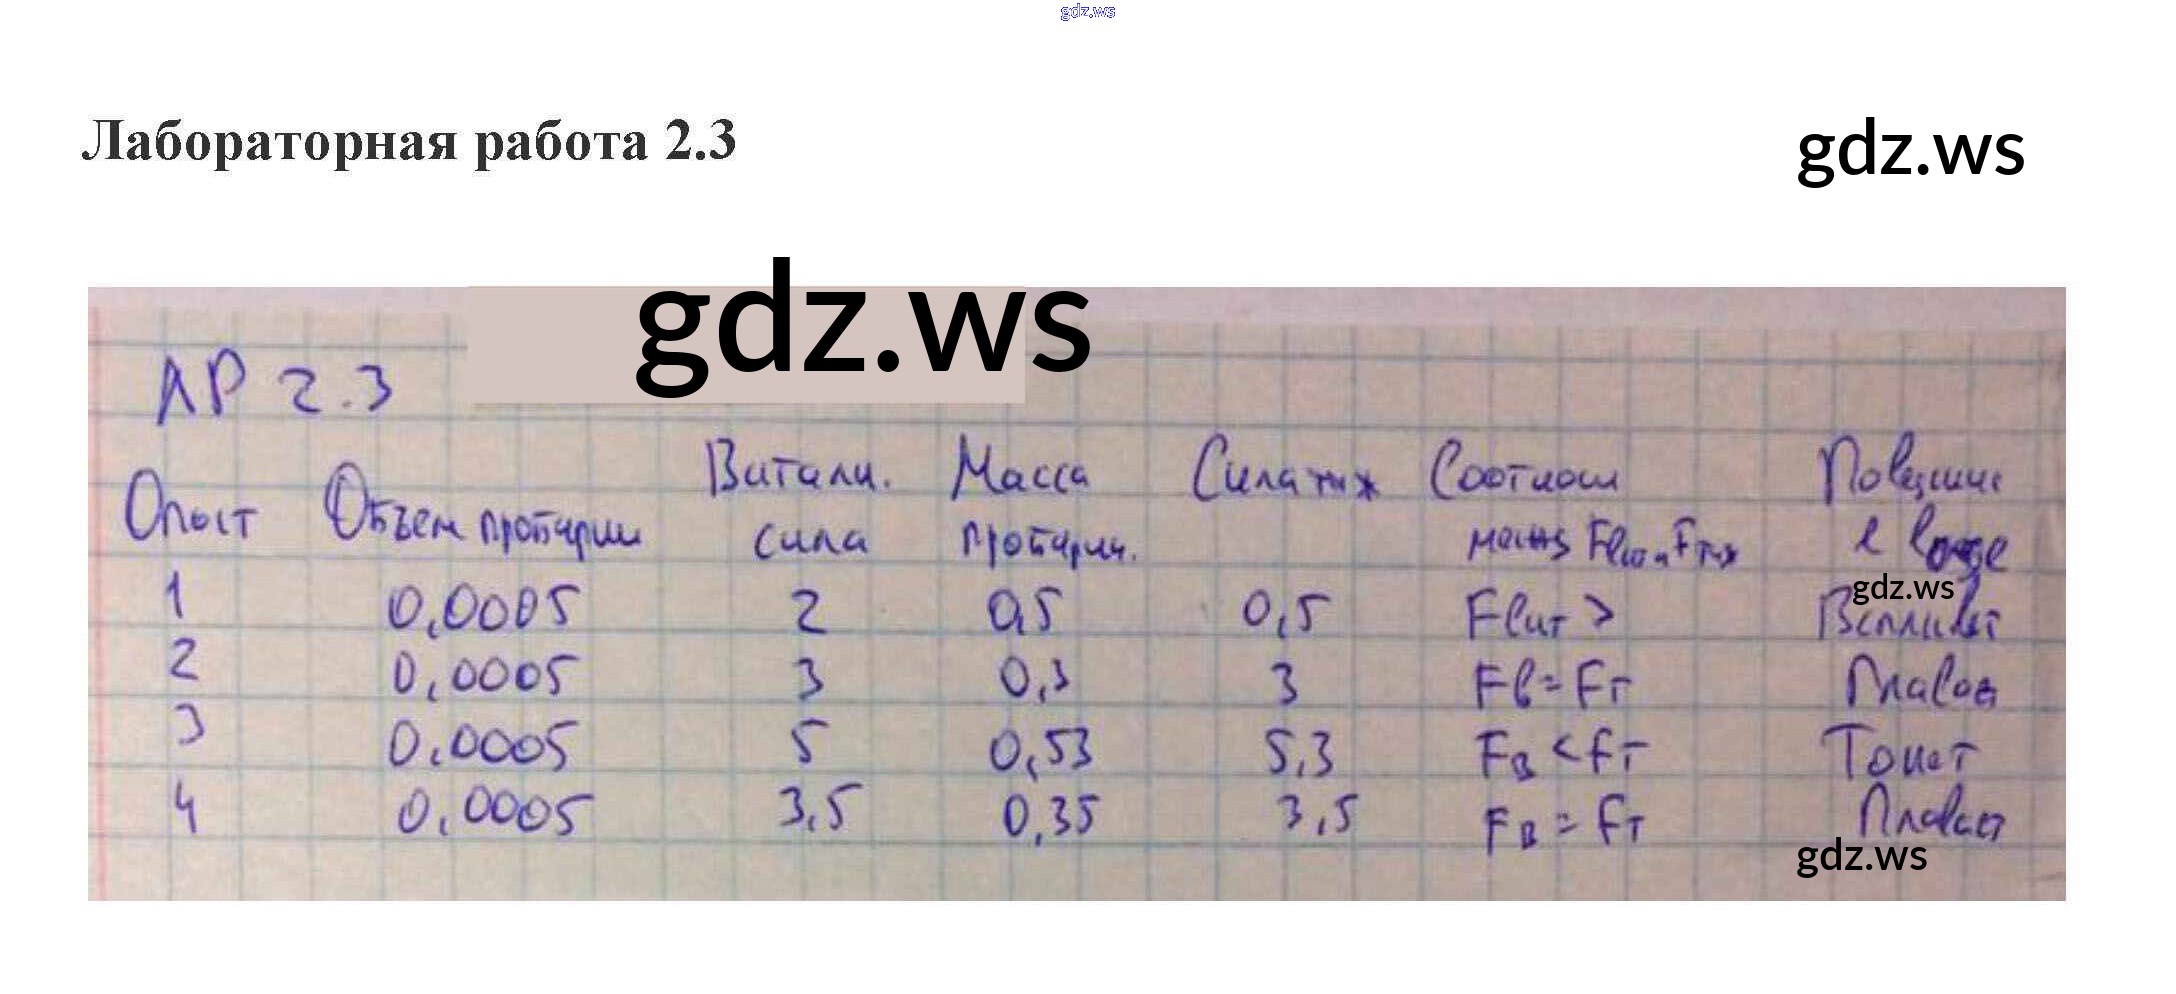 gdz.ws
Лабораторная работа 2.3
gdz.ws
gdz.ws
ЛР 2.3
Опыт Объем пробирки Виталк. сила Масса пробирки. Сила тяж Соотнош между Fвыт и Fтяж в воде
gdz.ws
1 0,0005 2 0,5 0,5 Fвыт > Всплывает
2 0,0005 3 0,3 3 Fв = Fт Плавает
3 0,0005 5 0,53 5,3 Fв < Fт Тонет
4 0,0005 3,5 0,35 3,5 Fв = Fт Плавает
gdz.ws